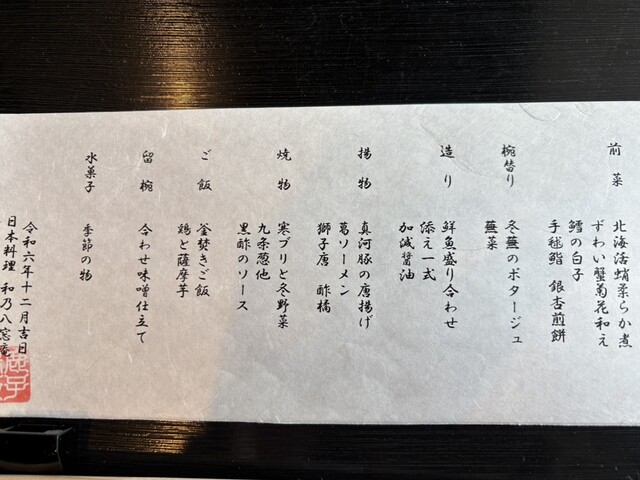 前菜
北海活蛸柔らか煮
ずわい蟹菊花和え
鱈の白子
手毬鮨 銀杏煎餅
椀替り
冬蕪のポタージュ
蕪菜
造り
鮮魚盛り合わせ
添え一式
加減醤油
揚物
真河豚の唐揚げ
葛ソーメン
獅子唐 酢橘
焼物
寒ブリと冬野菜
九条葱他
黒酢のソース
ご飯
釜焚きご飯
鶏と薩摩芋
留椀
合わせ味噌仕立て
水菓子
季節の物
令和六年十二月吉日
日本料理 和乃八窓庵